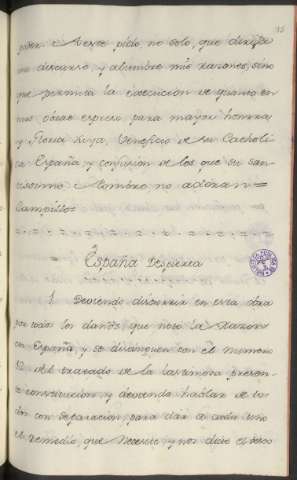 poder. A este pido, no solo, que dirija
mi discurso, y alumbre mis razones, sino
que permita la execucion de quanto en
mis obras expreso para mayor honrra,
y Gloria suya, veneficio de su Catholi
ca España y confusion de los que su san
tissimo Nombre no adoran=
Campillo=
= España Despierta
1. Deviendo discurrir en esta obra
por todos los daños que nota la Nazion
en España, y se distinguen con el numero
12 del tratado de la lastimosa presen
te constitucion, y deviendo hablar de to
dos con separacion, para dar a cada uno
el remedio, que necesita, y nos dice el